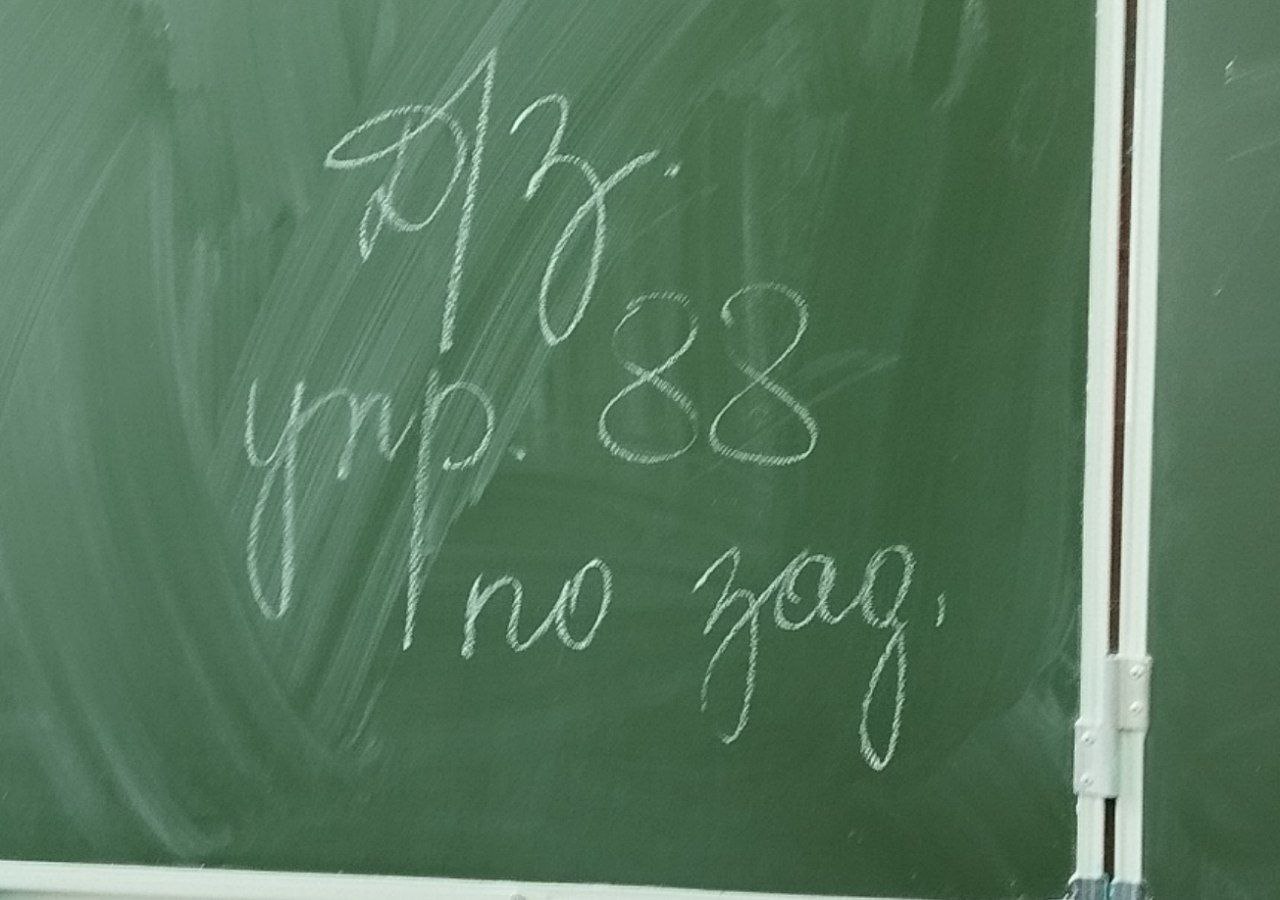 Д/з.
упр. 88
по зад.